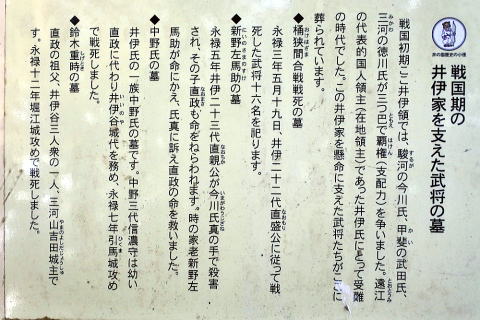 井の國歴史の小径
戦国期の
井伊家を支えた武将の墓
戦国初期ここ井伊領では、駿河の今川氏、甲斐の武田氏、
三河の徳川氏が三つ巴で覇権(支配力)を争いました。遠江
の代表的国人領主(在地領主)であった井伊氏にとって受難
の時代でした。この井伊家を懸命に支えた武将たちがここに
葬られています。
◆桶狭間合戦戦死の墓
永禄三年五月十九日、井伊二十二代直盛公に従って戦
死した武将十六名を祀ります。
◆新野左馬助の墓
永禄五年井伊二十三代直親公が今川氏真の手で殺害
され、その子直政も命をねらわれます。時の家老新野左
馬助が命にかえ、氏真に訴え直政の命を救いました。
◆中野氏の墓
井伊氏の一族中野氏の墓です。中野三代信濃守は幼い
直政に代わり井伊谷城代を務め、永禄七年引馬城攻め
で戦死しました。
◆鈴木重時の墓
直政の祖父、井伊谷三人衆の一人、三河山吉田城主で
す。永禄十二年堀江城攻めで戦死しました。